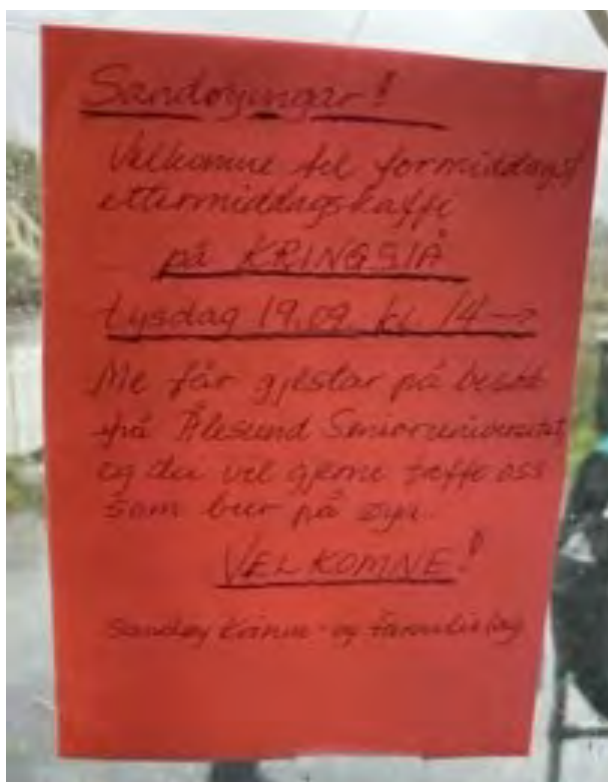 Sandøyingar!
Velkomne til formiddags/
ettermiddagskaffi
på KRINGSIÅ
tysdag 19.09 kl 14 →
Me får gjestar på besøk
frå Ålesund Senioruniversitet,
og dei vil gjerne treffe oss
som bur på øya.
VELKOMNE!
Sandøy Kvinne- og familielag